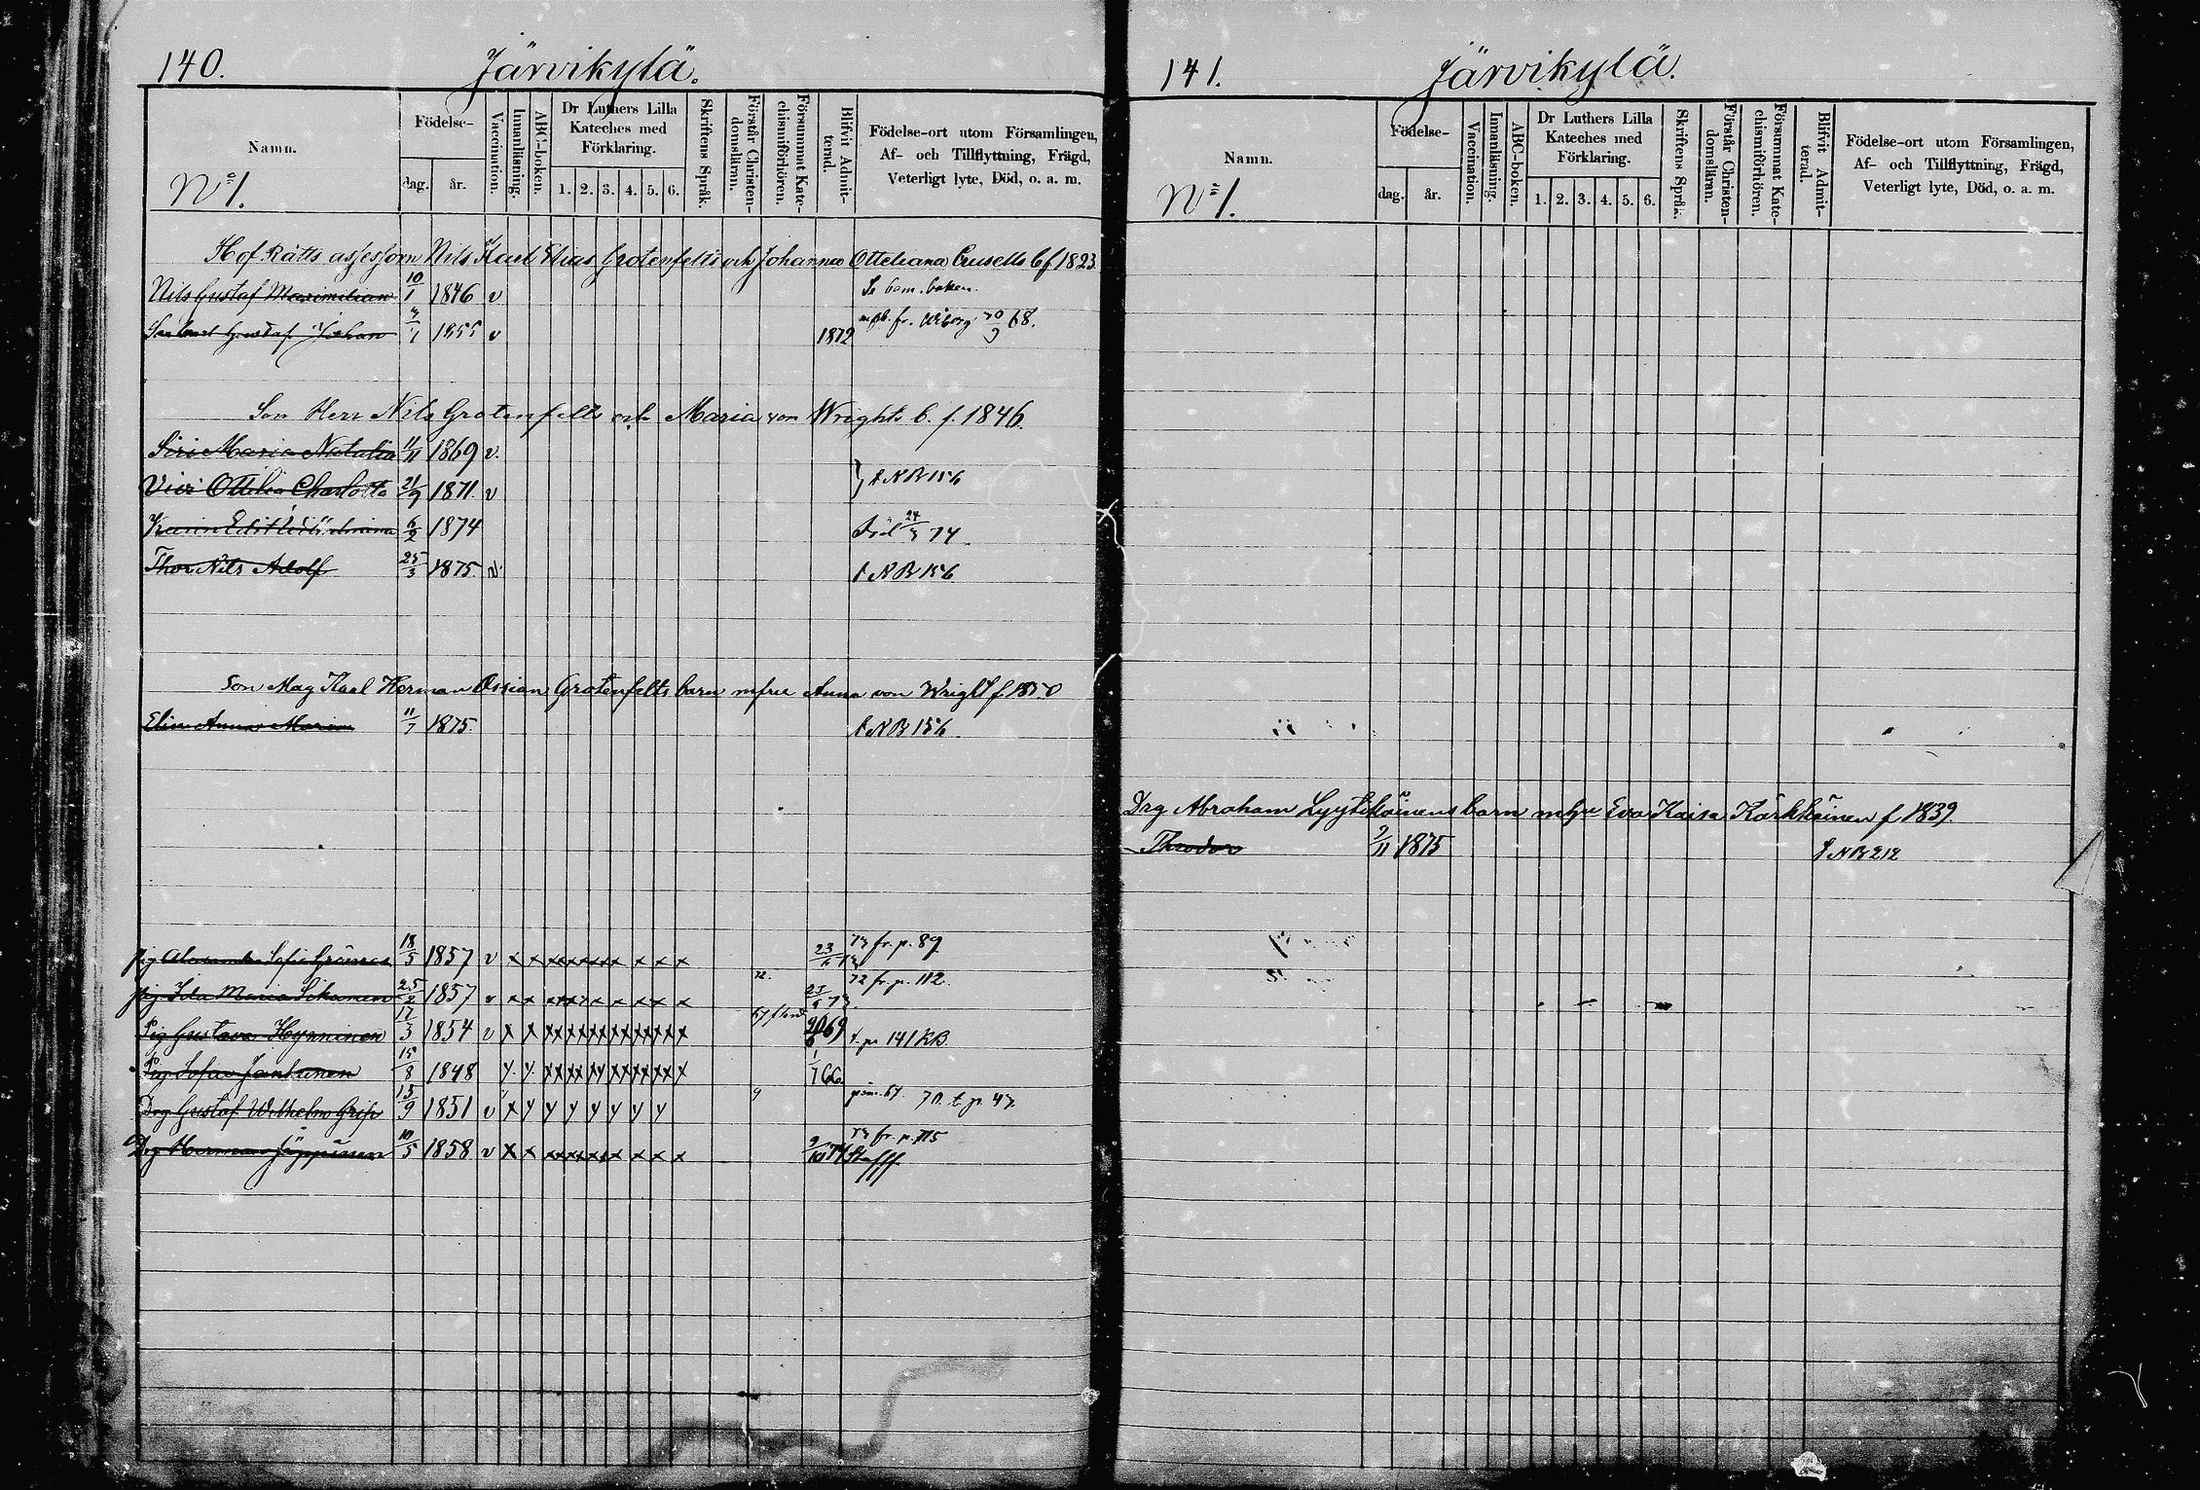 140. Järvikylä.
Namn. Födelse- dag. år. Vaccination. Innanläsning. ABC-boken. Dr Luthers Lilla Kateches med Förklaring. 1. 2. 3. 4. 5. 6. Skriftens Språk. Förstår Christendomsläran. Försummat Katechismiförhören. Blifvit Admitterad. Födelse-ort utom Församlingen, Af- och Tillflyttning, Frägd, Veterligt lyte, Död, o. a. m.
No 1.
Hof Rätts assessorn Nils Karl Elias Grotenfelts och Johanna Otteliana Crusells b f 1823
Nils Gustaf Maximilian 10/1 1846 v Se bem. boken.
Gustaf Johan 1855 v 1872 fr. Wiborg 68.
Son Herr Nils Grotenfelts och Maria von Wrights b. f. 1846.
Siri Maria Natalia 11/11 1869 v.
Ottilia Charlotta 21/9 1871. v } f NB 156
Karin Edit 6/2 1874 Död 24/3 74
Thor Nils Adolf 25/3 1875. v. f NB 156
Son Mag Karl Herman Ossian Grotenfelts barn mfru Anna von Wright f 1850
Elin Anna Maria 11/7 1875. f NB 156
Pig Sofia 18/5 1857 v x x x x x x x x x x 23 73 fr. p. 89
Pig Ida Maria 25/2 1857 v x x x x x x x x x x 72. 25 73 72 fr. p. 112.
Pig Gustava Hynninen 17/3 1854 v x x x x x x x x x x 67 69 t. p. 141 KB.
Pig Sofia Jantunen 15/8 1848 y. y. x x x x x x x x 1/7 66.
Drg Gustaf Wilhelm Grip 13/9 1851 v x y y y y y y y 9 67. 70. t. p. 47.
Drg Herman Jäppinen 10/5 1858 v x x x x x x x x x 9/10 74 73 fr. p. 115
141. Järvikylä.
Namn. Födelse- dag. år. Vaccination. Innanläsning. ABC-boken. Dr Luthers Lilla Kateches med Förklaring. 1. 2. 3. 4. 5. 6. Skriftens Språk. Förstår Christendomsläran. Försummat Katechismiförhören. Blifvit Admitterad. Födelse-ort utom Församlingen, Af- och Tillflyttning, Frägd, Veterligt lyte, Död, o. a. m.
No 1.
Drg Abraham Lyytikäinens barn mhu Eva Kaisa Kärkkäinen f 1839.
Theodor 9/11 1875 f NB 212